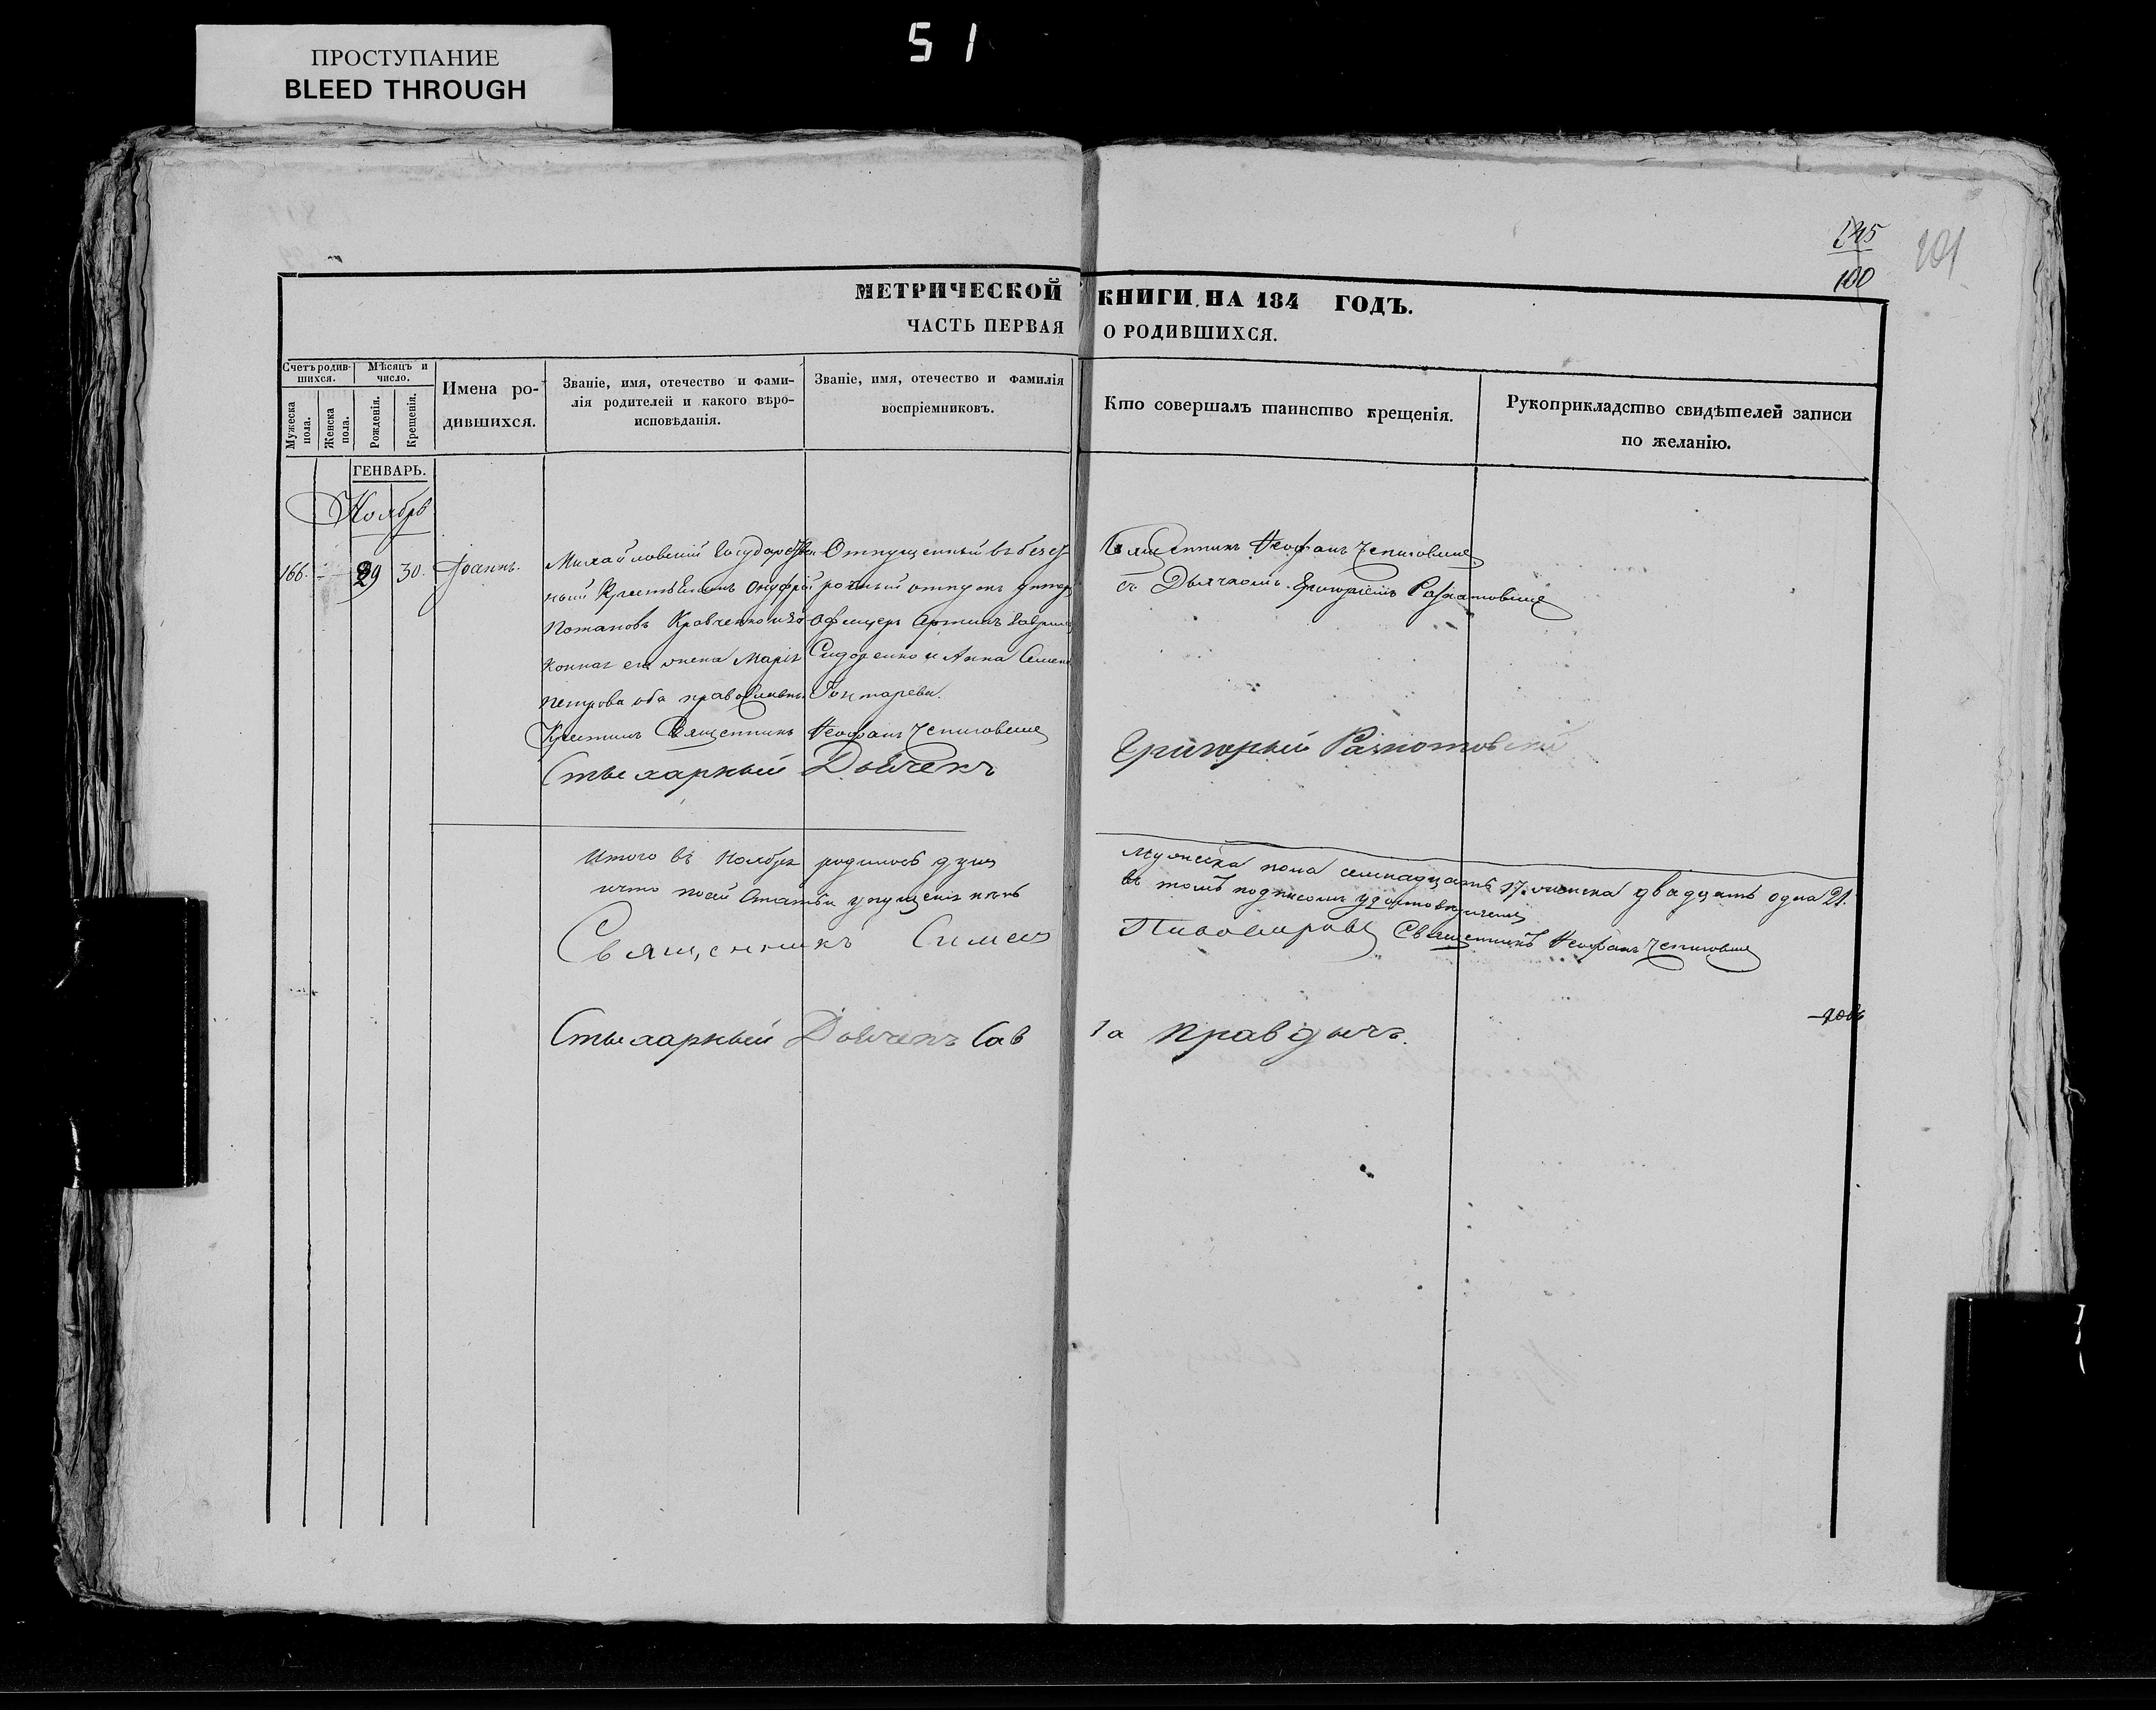 ПРОСТУПАНИЕ
BLEED THROUGH
51
145
100
101
МЕТРИЧЕСКОЙ КНИГИ НА 184 ГОДЪ.
ЧАСТЬ ПЕРВАЯ О РОДИВШИХСЯ.
Счетъ родившихся.
Мужеска пола.
Женска пола.
Мѣсяцъ и число.
Рожденія.
Крещенія.
Имена родившихся.
Званіе, имя, отечество и фамилія родителей и какого вѣроисповѣданія.
Званіе, имя, отечество и фамилія воспріемниковъ.
Кто совершалъ таинство крещенія.
Рукоприкладство свидѣтелей записи по желанію.
ГЕНВАРЬ.
Ноябрь
166. 29 30. Іоаннъ.
Михайловскій Государствен
ный Крестьянинъ Онуфрій
Потаповъ Кравченко и за
конная его жена Марія
Петрова оба православны
Отпущенный въ безс
рочный отпускъ унтер
офицеръ Артимъ Гаврил
Сидоренко и Анна Семен
Гонтарева.
Священникъ Неофанъ
съ Дьячкомъ Григоріемъ
Крестилъ Священникъ Неофанъ
Стыхарный Дьячекъ Григорый
Итого въ Ноябрѣ родилось душ мужеска пола семнадцать 17. женска двадцать одна 21.
что по сей Статьи упущенія нѣтъ въ томъ подписомъ удостовѣряемъ
Священникъ Симеон Пивоваровъ Священникъ Неофанъ
Стыхарный Дьячекъ Савва Правдычъ.